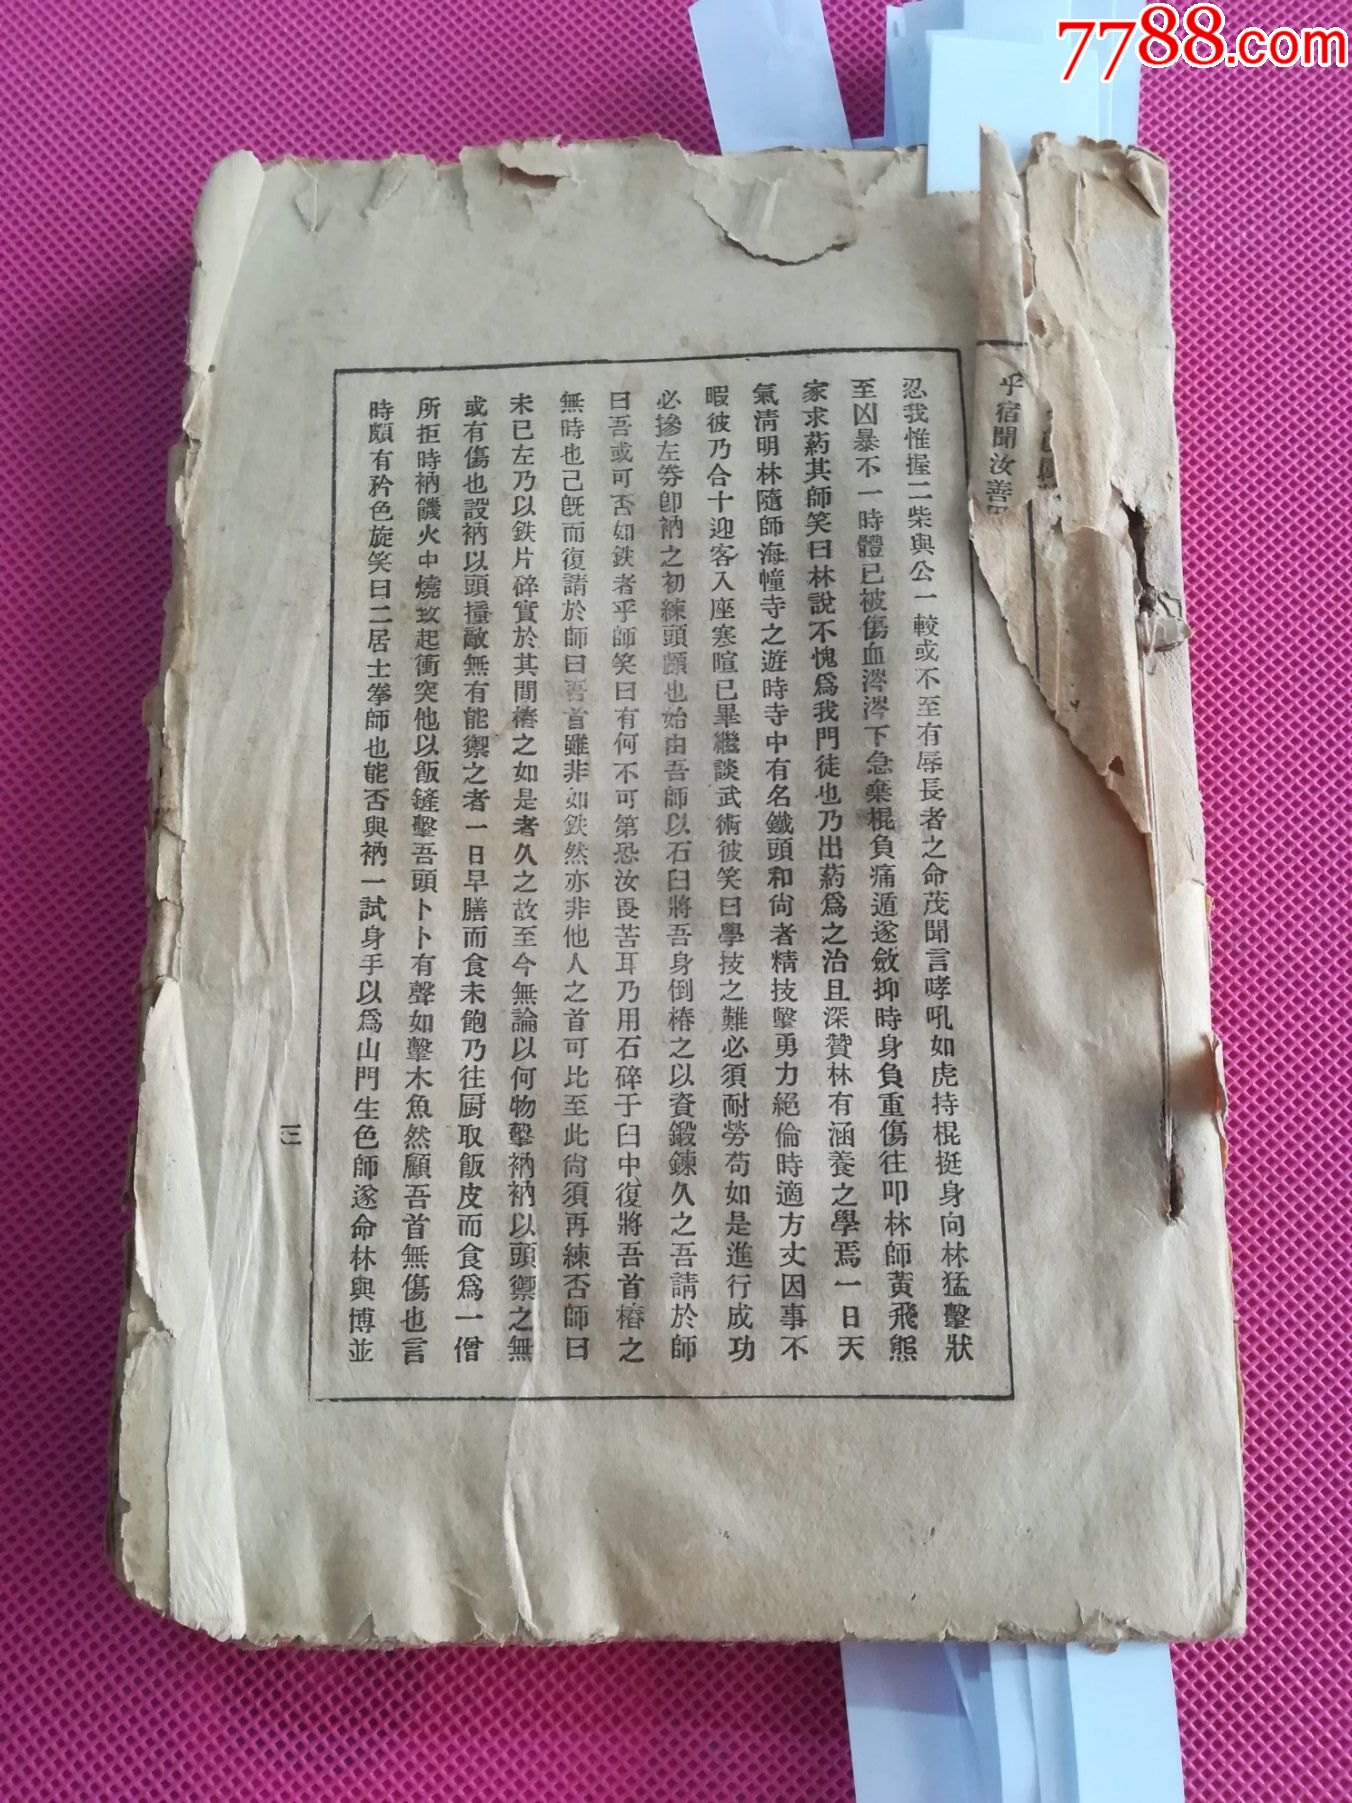 7788.com
乎宿聞汝善
忍我惟握二柴與公一較或不至有辱長者之命茂聞言哮吼如虎持棍挺身向林猛擊狀
至凶暴不一時體已被傷血涔涔下急棄棍負痛遁遂斂抑時身負重傷往叩林師黃飛熊
家求葯其師笑曰林說不愧爲我門徒也乃出葯爲之治且深贊林有涵養之學焉一日天
氣淸明林隨師海幢寺之遊時寺中有名鐵頭和尙者精技擊勇力絕倫時適方丈因事不
暇彼乃合十迎客入座寒暄已畢繼談武術彼笑曰學技之難必須耐勞苟如是進行成功
必摻左券卽衲之初練頭顱也始由吾師以石臼將吾身倒樁之以資鍛鍊久之吾請於師
曰吾或可否如鉄者乎師笑曰有何不可第恐汝畏苦耳乃用石碎于臼中復將吾首樁之
無時也己旣而復請於師曰吾首雖非如鉄然亦非他人之首可比至此尙須再練否師曰
未已左乃以鉄片碎實於其間樁之如是者久之故至今無論以何物擊衲衲以頭禦之無
或有傷也設衲以頭撞敵無有能禦之者一日早膳而食未飽乃往厨取飯皮而食爲一僧
所拒時衲饑火中燒致起衝突他以飯鏟擊吾頭卜卜有聲如擊木魚然顧吾首無傷也言
時頗有矜色旋笑曰二居士拳師也能否與衲一試身手以爲山門生色師遂命林與博並
三